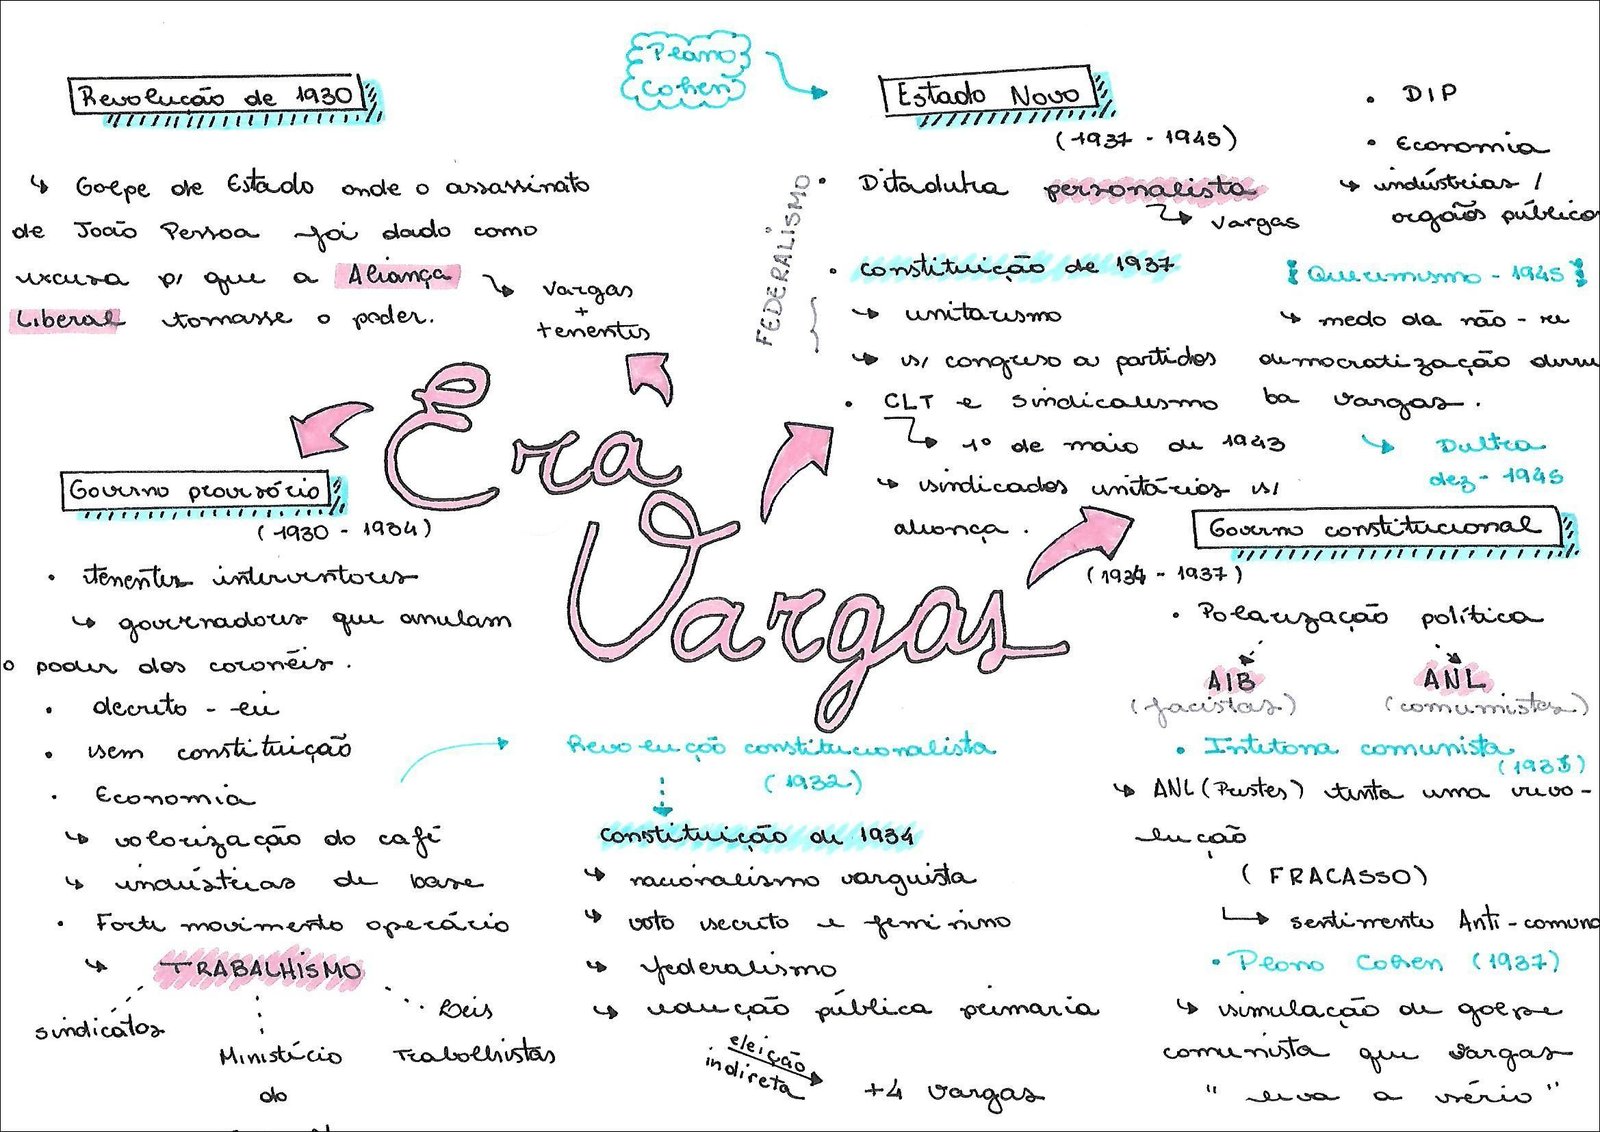 Revolução de 1930
↳ Golpe de Estado onde o assassinato
de João Pessoa foi dado como
excusa p/ que a Aliança
Liberal tomasse o poder.
Vargas
+
tenentes
Plano
Cohen
Estado Novo
(1937 - 1945)
• Ditadura personalista
Vargas
FEDERALISMO
• constituição de 1937
↳ unitarismo
↳ s/ congreso e partidos
• CLT e Sindicalismo
↳ 1º de maio de 1943
↳ sindicados unitários s/
aliança.
• DIP
• Economia
↳ indústrias /
orgãos público
Queremismo - 1945
↳ medo da não - re
democratização derru
ba Vargas.
Dultra
dez - 1945
Era
Vargas
Governo provisório
(1930 - 1934)
• tenentes interventores
↳ governadores que anulam
o poder dos coronéis.
• decreto - lei
• sem constituição
• Economia
↳ valorização do café
↳ indústrias de base
• Forte movimento operário
↳ TRABALHISMO
sindicatos
Ministério
do
Leis
Trabalhistas
Revolução constitucionalista
(1932)
constituição de 1934
↳ nacionalismo varguista
↳ voto secreto e feminino
↳ federalismo
↳ edução pública primaria
eleição
indireta
+4 Vargas
Governo constitucional
(1934 - 1937)
• Polarização política
AIB
(facistas)
ANL
(comunistas)
• Intetona comunista
(1935)
↳ ANL (Prestes) tenta uma revo-
lução
(FRACASSO)
↳ sentimento Anti-comuno
• Plano Cohen (1937)
↳ simulação de golpe
comunista que Vargas
"leva a sério"